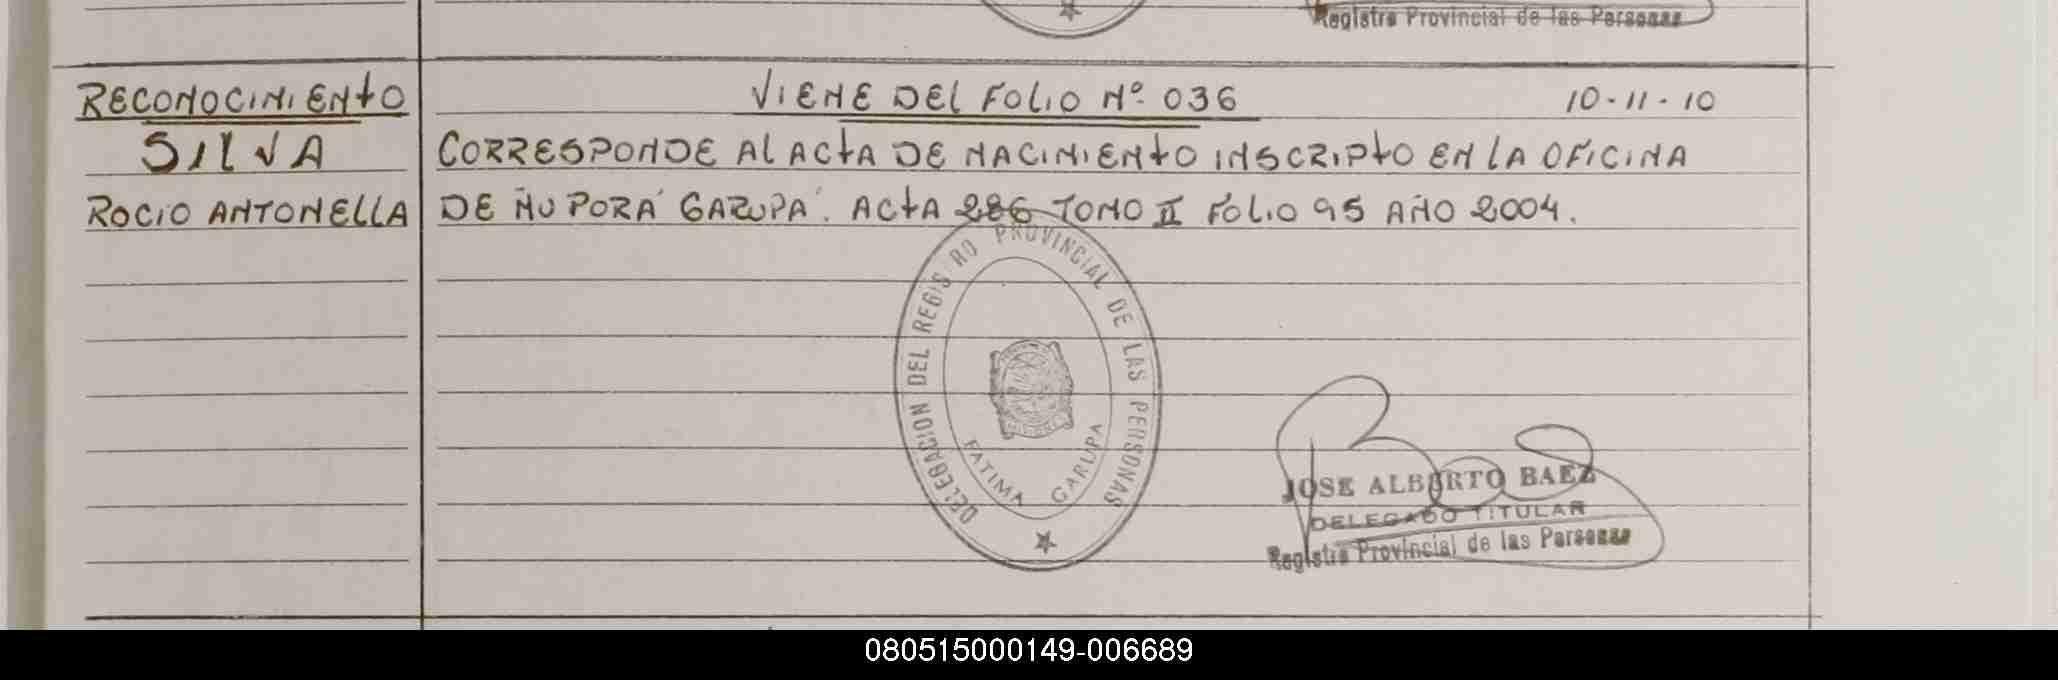 Registro Provincial de las Personas
RECONOCIMIENTO
VIENE DEL FOLIO Nº 036
10-11-10
SILVA
CORRESPONDE AL ACTA DE NACIMIENTO INSCRIPTO EN LA OFICINA
ROCIO ANTONELLA
DE ÑU PORÁ GARUPÁ. ACTA 286 TOMO II FOLIO 95 AÑO 2004.
DELEGACION DEL REGISTRO PROVINCIAL DE LAS PERSONAS
FATIMA GARUPA
JOSE ALBERTO BAEZ
DELEGADO TITULAR
Registro Provincial de las Personas
080515000149-006689